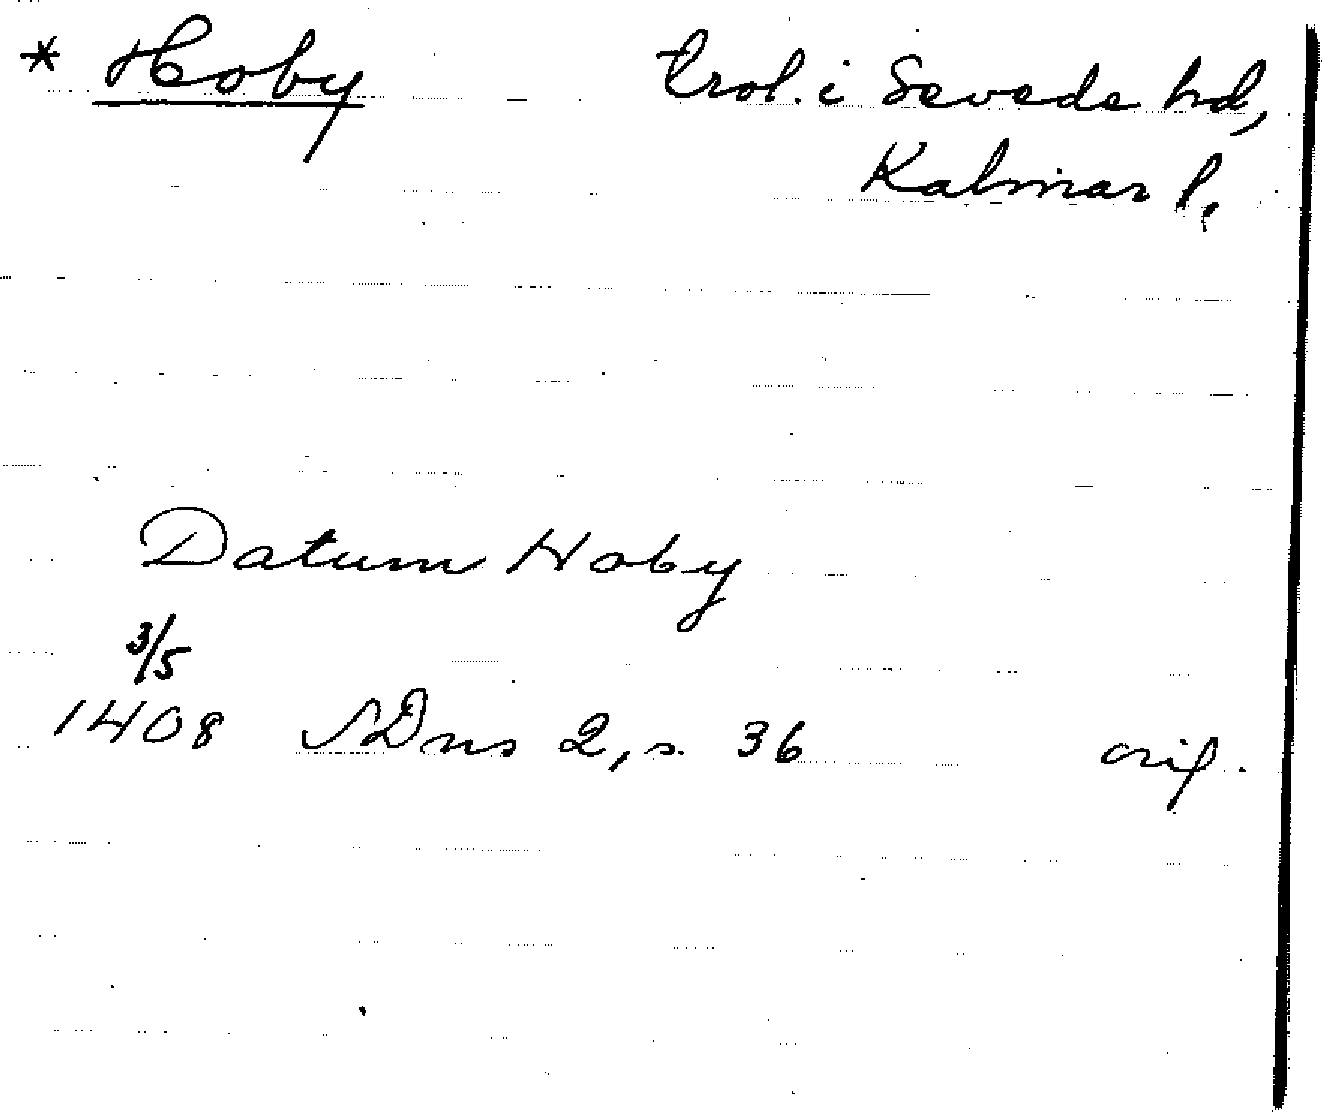 * Hoby trol. i Sevede hd,
Kalmar l.
Datum Hoby
3/5
1408 SDns 2, s. 36 orig.